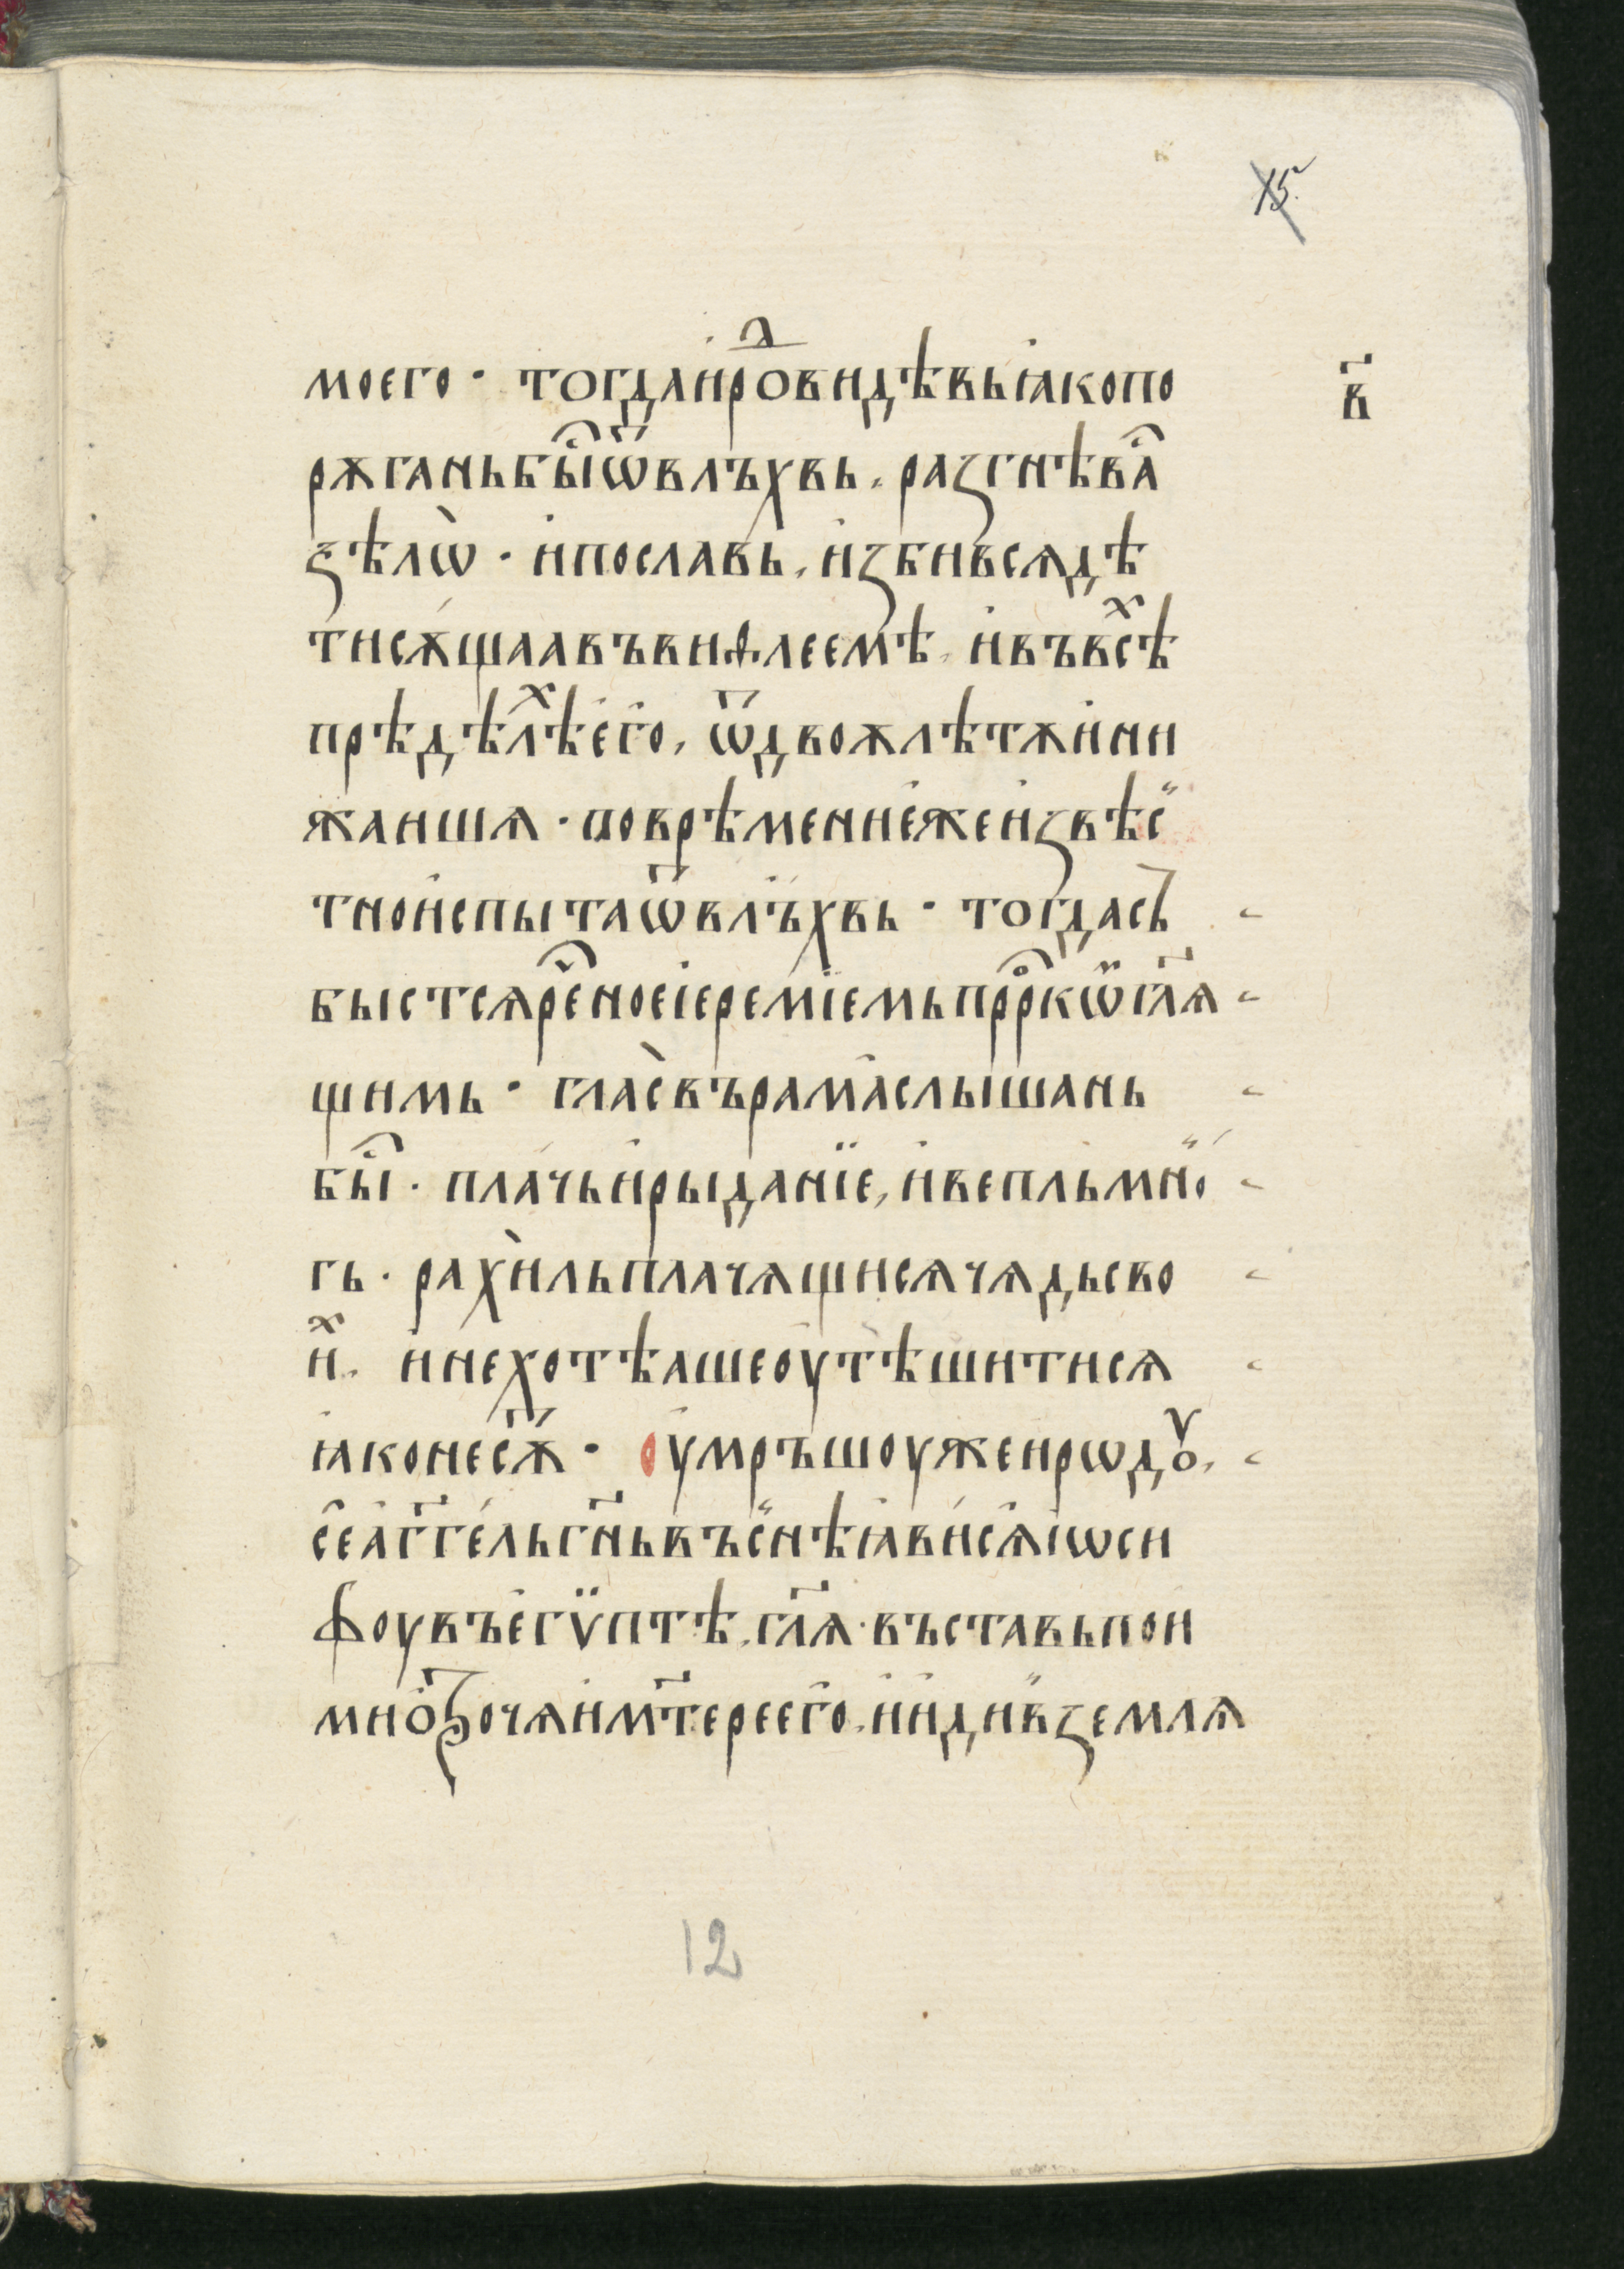 15
моего · тогда иро́ⷣ видѣвь ꙗко по в҃
рѫгань бы̑ ѿ влъхвь . разгнѣва̑
ѕѣлѡ̀ · и пославь , изби всѧ дѣ
ти сѫщаа въ виѳлеемѣ , и въ всѣⷯ
прѣдѣлѣⷯ его , ѿ двою лѣтѫ и ни
жаишѧ · по врѣмени еже извѣс
тно испыта ѿ влъхвь · тогда съ
быстсѧ рее҇ное іереміемь прⷪ҇ркѡ гл҃ѧ
щимь · глаⷭ въ рама слышань
бы̑ · плачь и рыданїе , и вепль мно
гь · рахиль плачѧщисѧ чѧдь сво
иⷯ . и не хотѣаше оутѣшитисѧ
ꙗко не сѫ҃ · оумръшоу же ирѡдꙋ ,
се аг҃гель гн҃ь въ снѣ ꙗвисѧ іѡси
фоу въ егѵптѣ , гл҃ѧ · въставь пои
ми ѻтрочѧ и мт҃ере его , и иди в землѧ
12